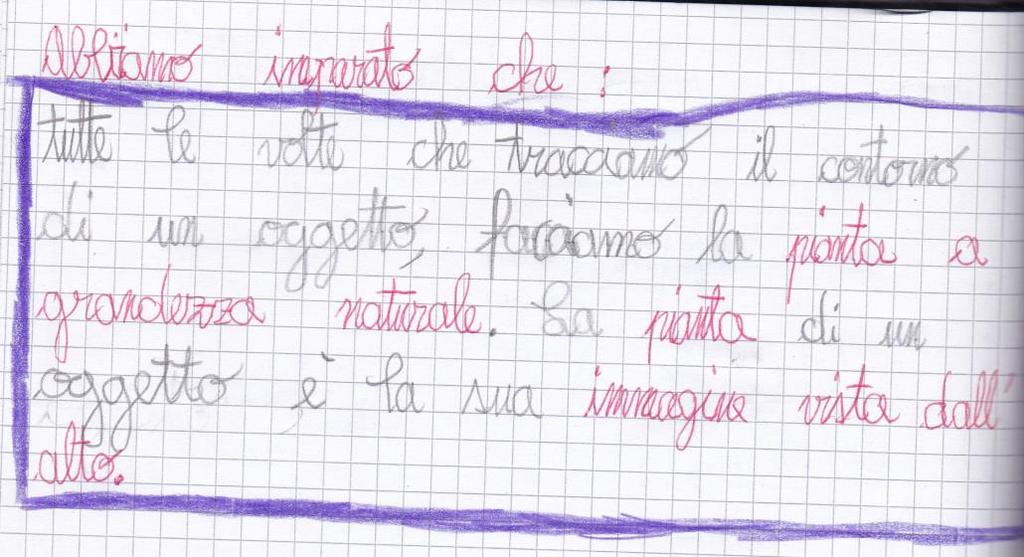 Abbiamo imparato che:
tutte le volte che tracciamo il contorno
di un oggetto, facciamo la pianta a
grandezza naturale. La pianta di un
oggetto è la sua immagine vista dall'
alto.